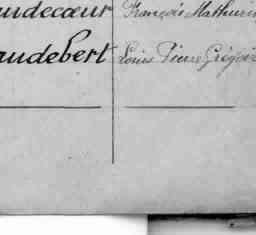 udecœur François Mathurin
audebert Louis Pierre Grégoire